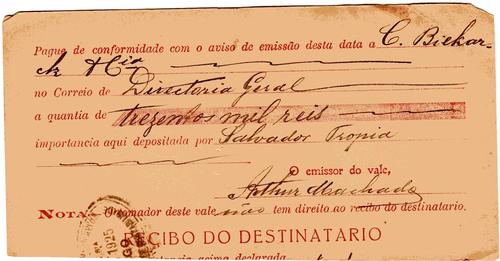 Pague de conformidade com o aviso de emissão desta data a C. Biekar-
ck & Cia
no Correio de Directoria Geral
a quantia de trezentos mil reis
importancia aqui depositada por Salvador Tropia
O emissor do vale,
Arthur Machado
NOTA.- O tomador deste vale não tem direito ao recibo do destinatario.
RECIBO DO DESTINATARIO
acima declarada
1925